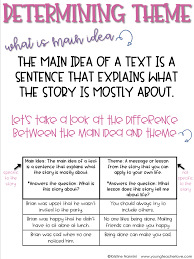 DETERMINING THEME
what is main idea
THE MAIN IDEA OF A TEXT IS A
SENTENCE THAT EXPLAINS WHAT
THE STORY IS MOSTLY ABOUT.
let's take a look at the difference
between the main idea and theme
Main Idea: The main idea of a text
is a sentence that explains what
the story is mostly about.
*Answers the question: What is
the story about?
Theme: A message or lesson
from the story that you can
apply to your own life.
*Answers the question: What
lesson does the story tell me
about life?
Brian was upset that he wasn't
invited to the party.
You should always try to
include others.
Brian was not happy that he didn't
have anyone to sit alone.
No one likes being alone. Making
friends can make you happy.
Brian was sad when no one
noticed him.
Being alone can make you sad.